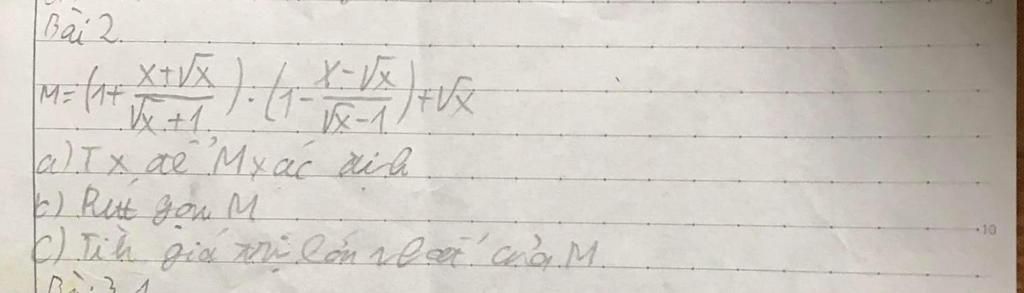 Bài 2
M = (1 + \frac{x+√x}{√x+1}) . (1 - \frac{x-√x}{√x-1}) + √x
a) Tx để M xác định
b) Rút gọn M
c) Tính giá trị lớn nhất của M
10